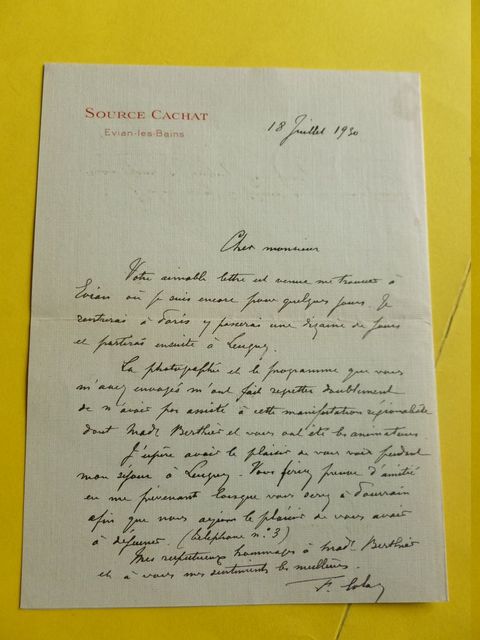 SOURCE CACHAT
Evian-les-Bains
18 Juillet 1930
Cher monsieur
Votre aimable lettre est venue me trouver à
Evian où je suis encore pour quelques jours. Je
rentrerai à Paris y passerai une dizaine de jours
et partirai ensuite à Lugny.
La photographie et le programme que vous
m'avez envoyés m'ont fait regretter doublement
de n'avoir pas assisté à cette manifestation régionaliste
dont Made Berthier et vous ont été les animateurs.
J'espère avoir le plaisir de vous voir pendant
mon séjour à Lugny. Vous ferez preuve d'amitié
en me prévenant lorsque vous serez à Tournin
afin que nous ayions le plaisir de vous avoir
à déjeuner (téléphone n° 3)
Mes respectueux hommages à Made Berthier
et à vous mes sentiments les meilleurs.
F.